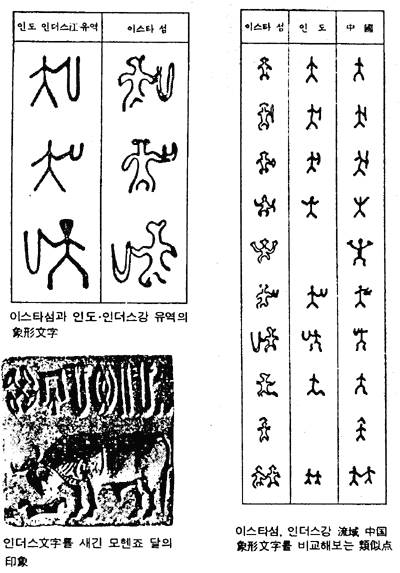 인도 인더스江유역
이스타 섬
이스타섬과 인도·인더스강 유역의
象形文字
인더스文字를 새긴 모헨죠 달의
印象
이스타 섬
인 도
中 國
이스타섬, 인더스강 流域 中国
象形文字를 비교해보는 類似点